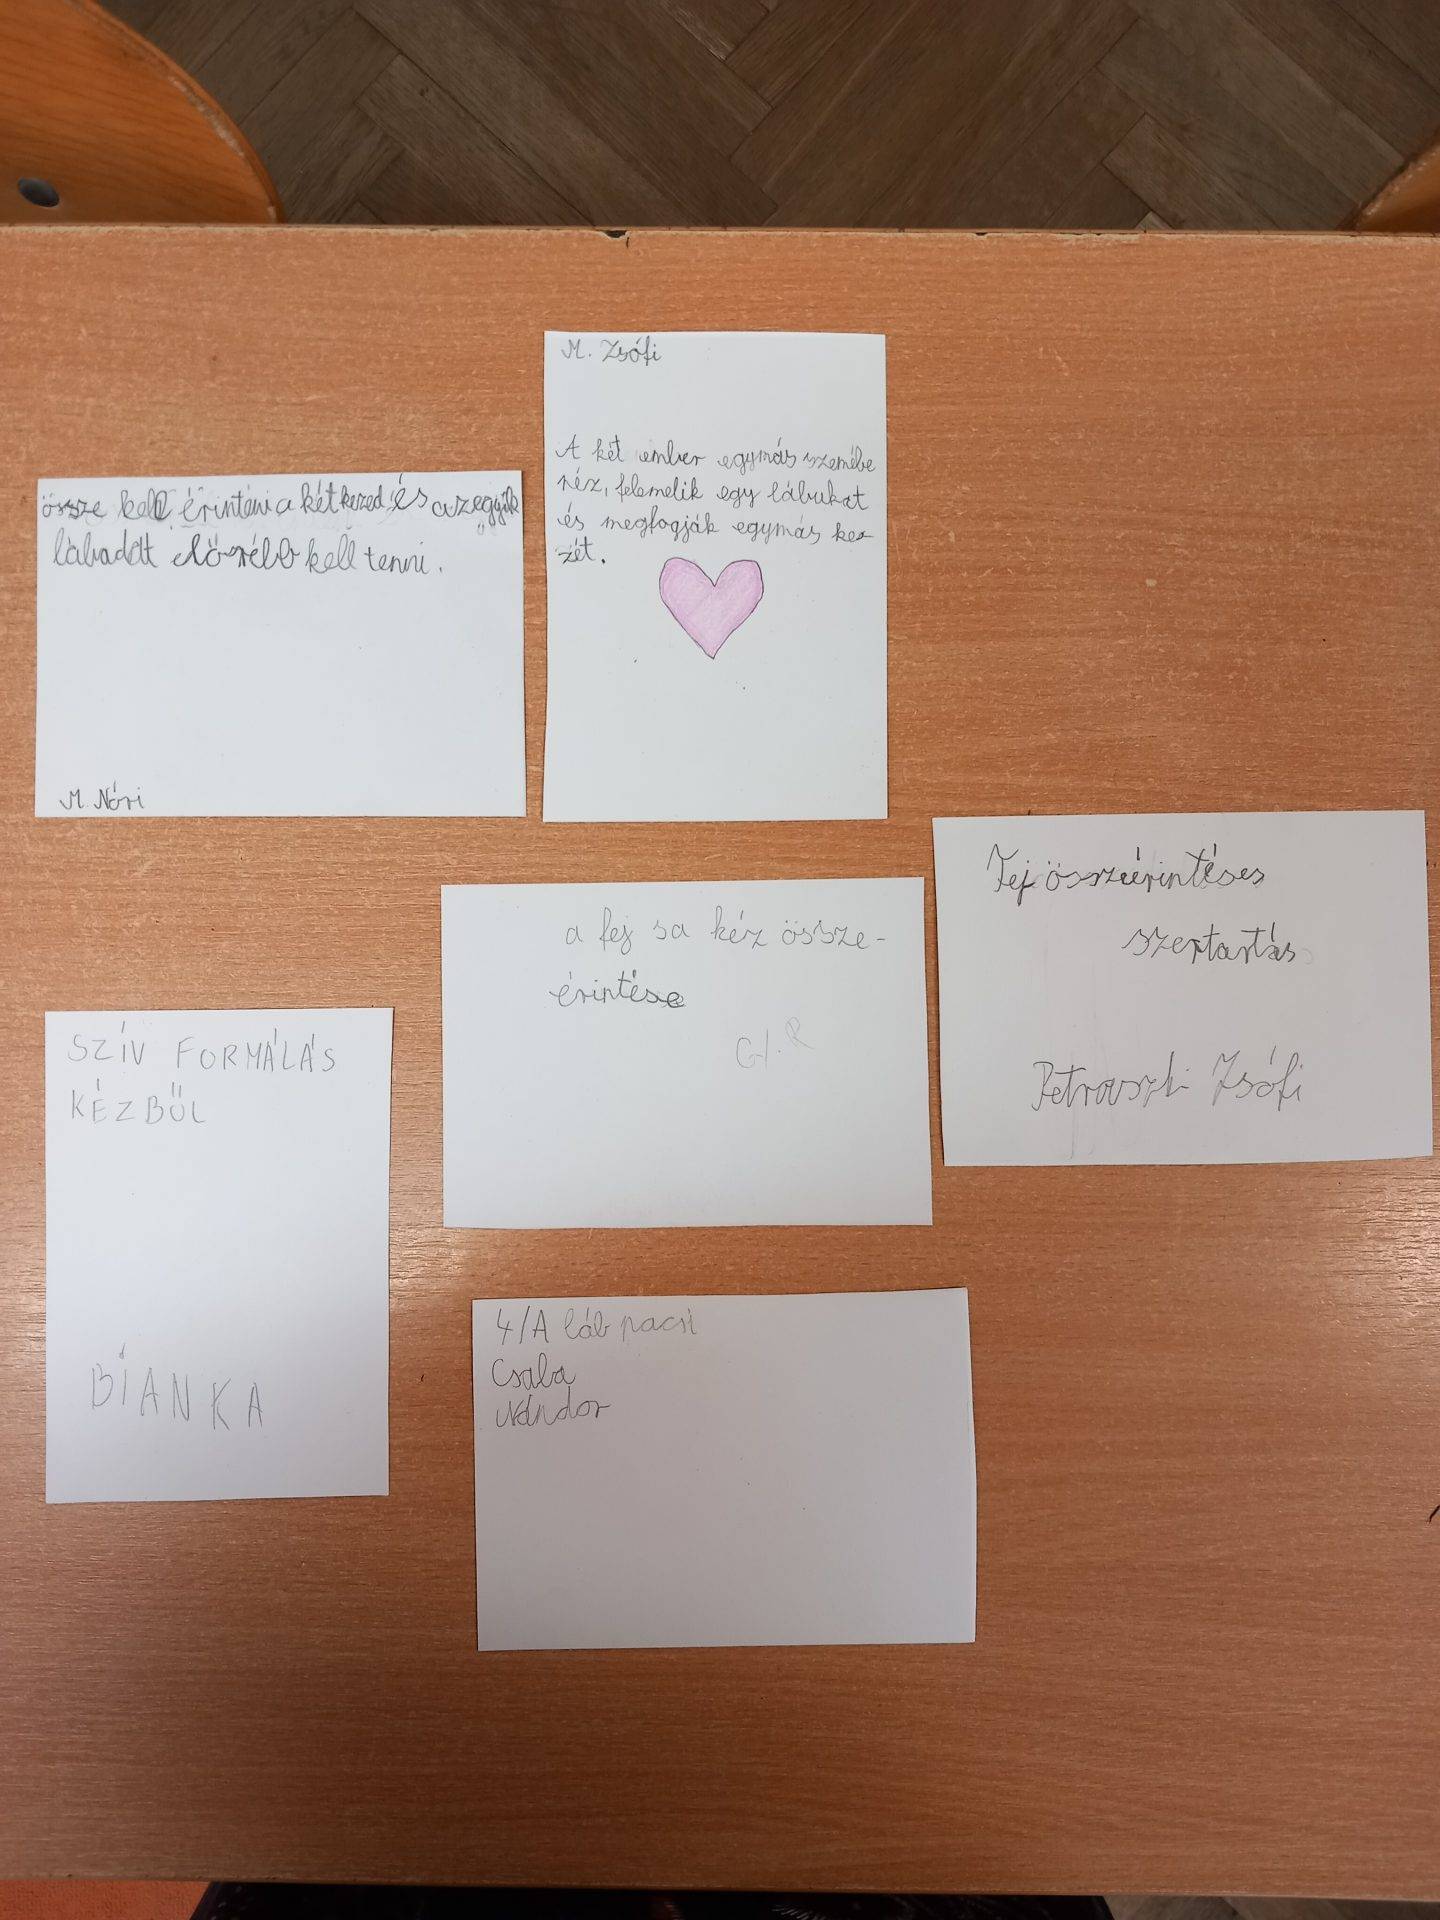 M. Zsófi
A két ember egymás szemébe
néz, felemelik egy lábukat
és megfogják egymás ke-
zét.
össze kell érinteni a két kezed és az egyik
lábadat előrébb kell tenni.
M. Nóri
Fej összeérintéses
szertartás
Petrovszki Zsófi
a fej s a kéz össze-
érintése
SZÍV FORMÁLÁS
KÉZBŐL
BIANKA
4/A láb pacsi
Csaba
Nándor